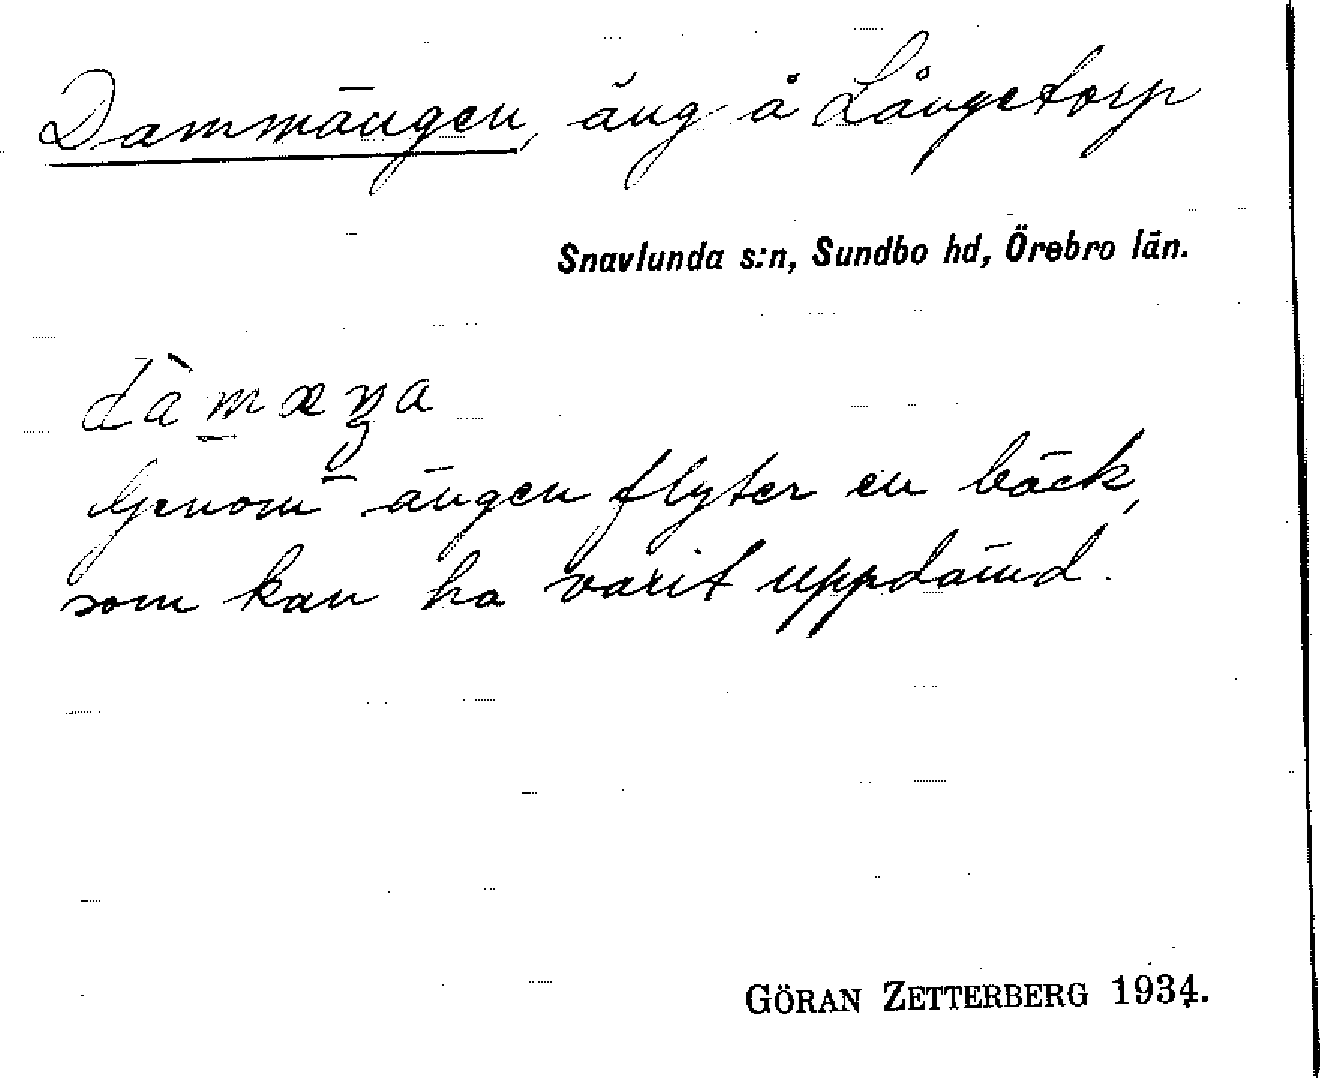 Dammängen, äng å Långetorp
Snavlunda s:n, Sundbo hd, Örebro län.
dàmæŋa
Genom ängen flyter en bäck,
som kan ha varit uppdämd.
GÖRAN ZETTERBERG 1934.